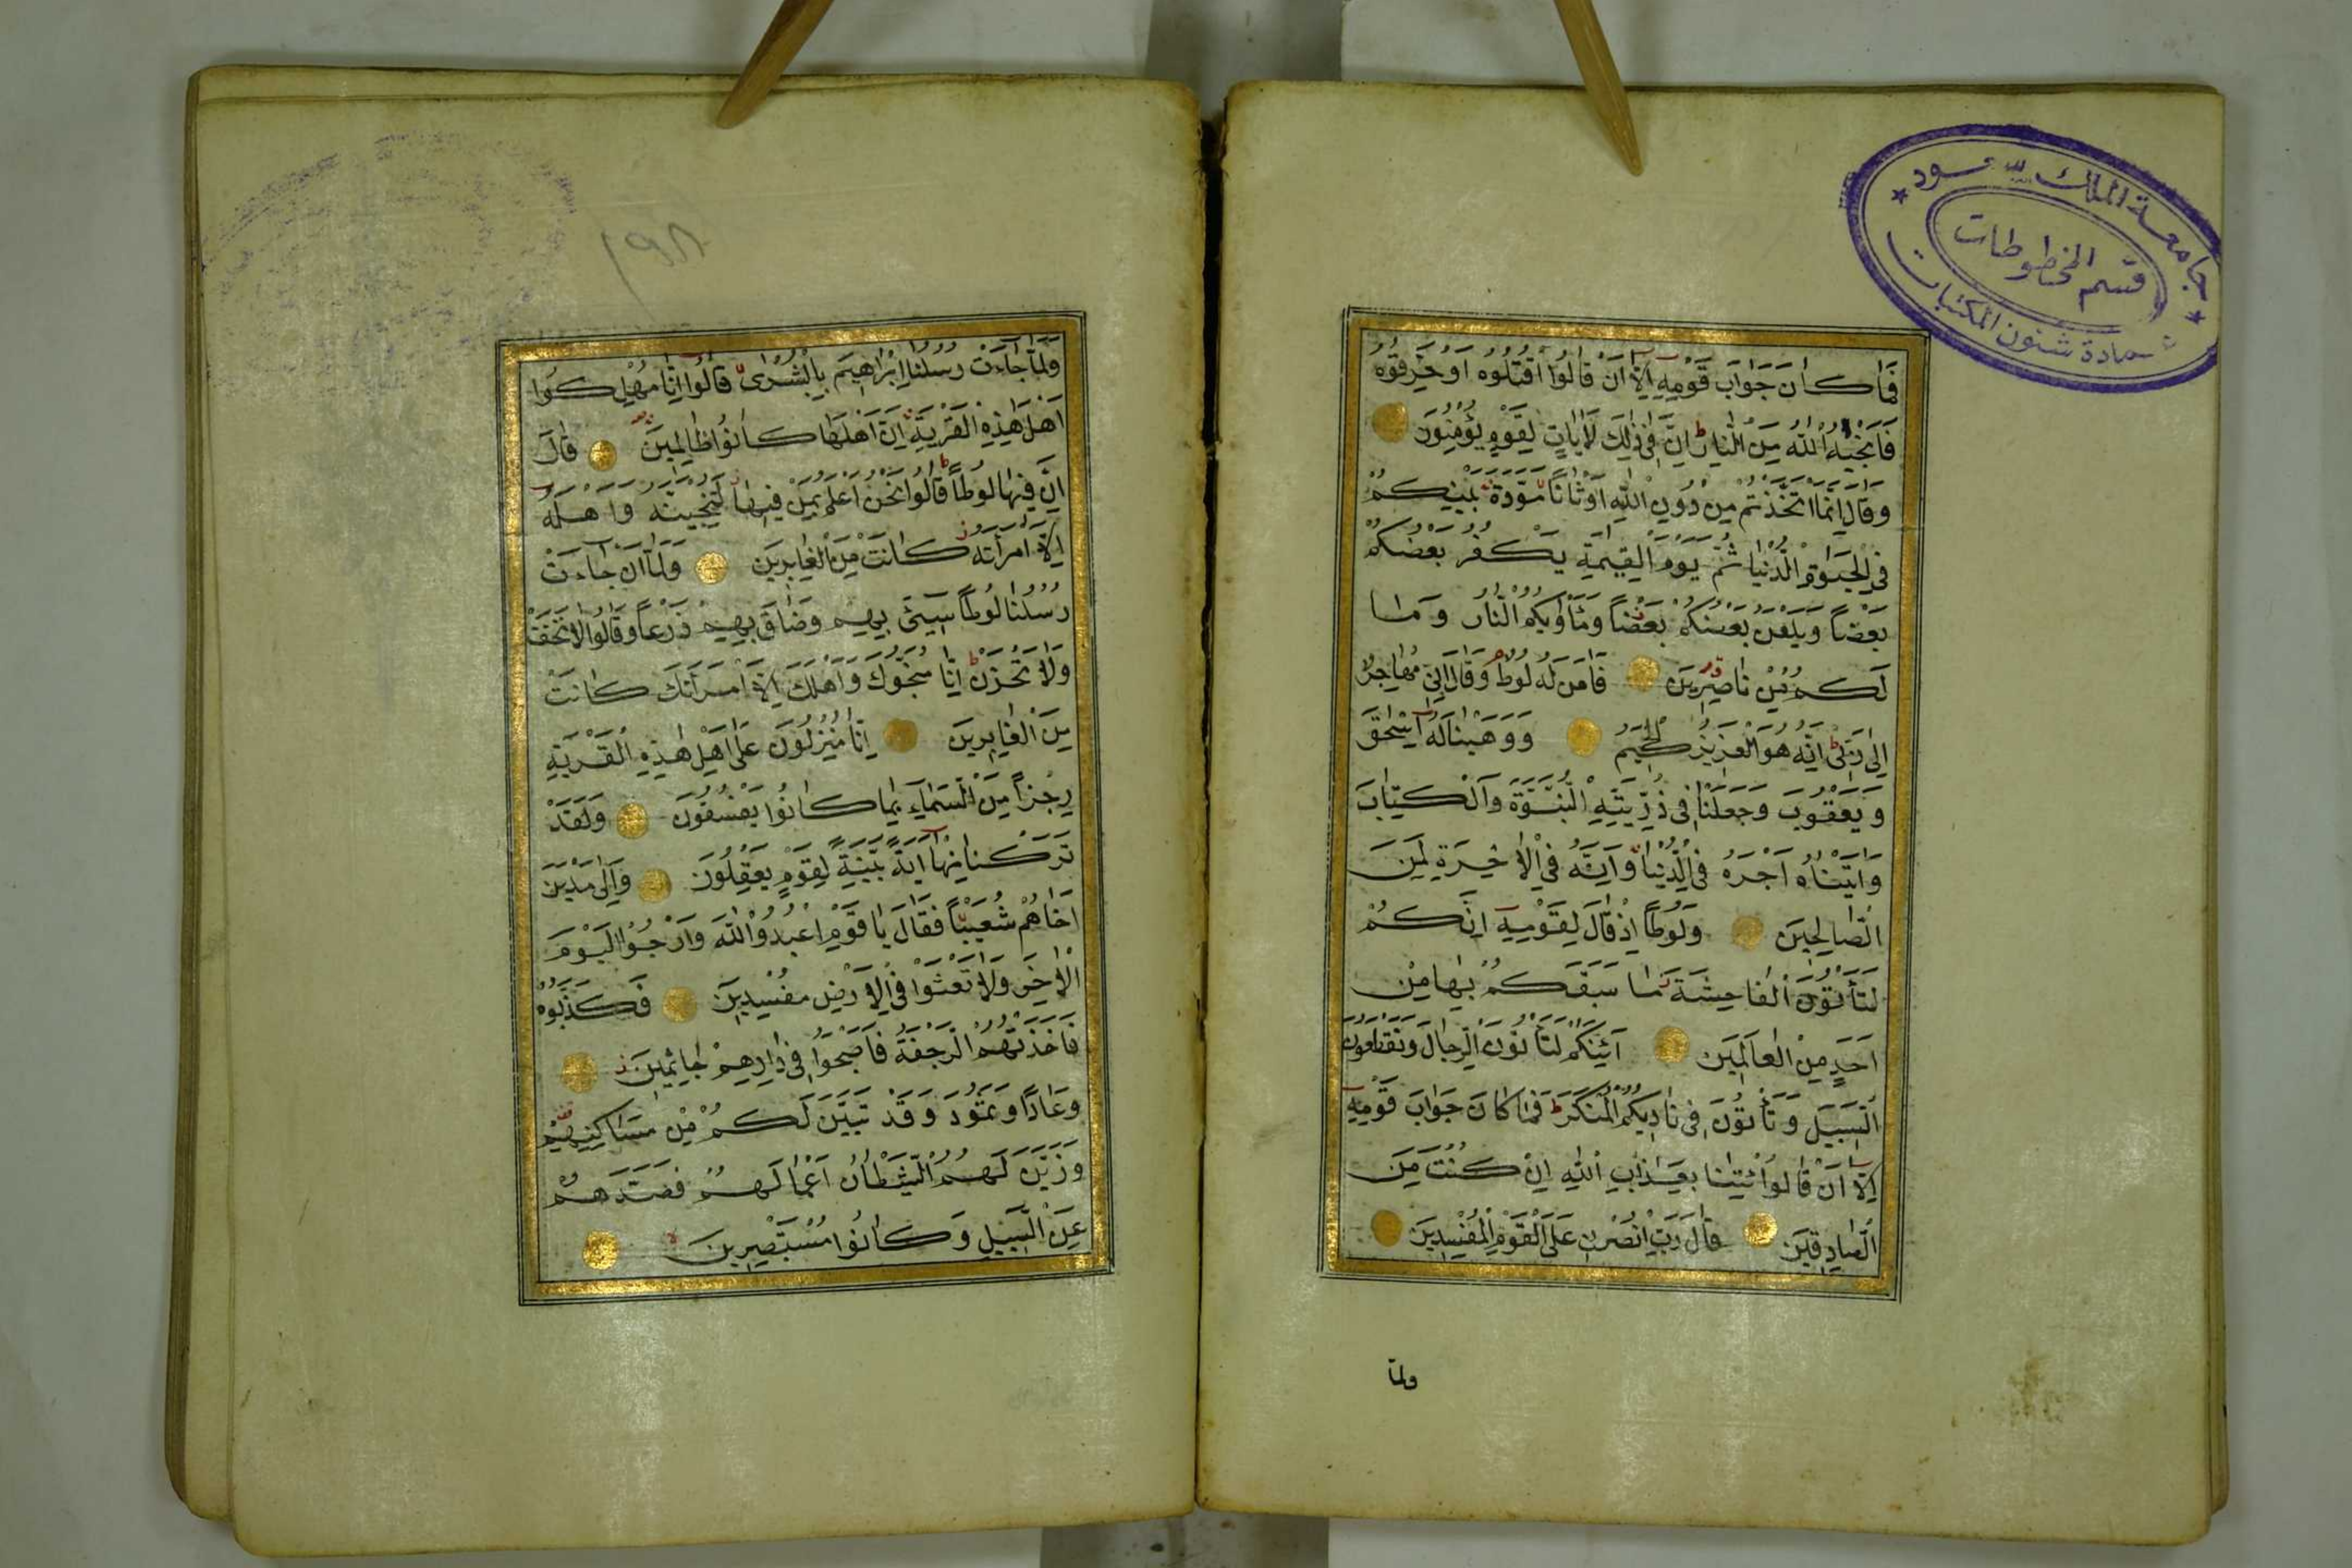 جامعة الملك سعود
قسم المخطوطات
عمادة شئون المكتبات
فَمَا كَانَ جَوَابَ قَوْمِهِ اِلَّا اَنْ قَالُوا اقْتُلُوهُ اَوْ حَرِّقُوهُ
فَاَنْجٰيهُ اللّٰهُ مِنَ النَّارِ اِنَّ فِى ذٰلِكَ لَاٰيَاتٍ لِقَوْمٍ يُؤْمِنُونَ
وَقَالَ اِنَّمَا اتَّخَذْتُمْ مِنْ دُونِ اللّٰهِ اَوْثَانًا مَوَدَّةَ بَيْنِكُمْ
فِى الْحَيٰوةِ الدُّنْيَا ثُمَّ يَوْمَ الْقِيٰمَةِ يَكْفُرُ بَعْضُكُمْ
بِبَعْضٍ وَيَلْعَنُ بَعْضُكُمْ بَعْضًا وَمَأْوٰيكُمُ النَّارُ وَمَا
لَكُمْ مِنْ نَاصِرِينَ فَاٰمَنَ لَهُ لُوطٌ وَقَالَ اِنِّى مُهَاجِرٌ
اِلٰى رَبِّى اِنَّهُ هُوَ الْعَزِيزُ الْحَكِيمُ وَوَهَبْنَا لَهُ اِسْحٰقَ
وَيَعْقُوبَ وَجَعَلْنَا فِى ذُرِّيَّتِهِ النُّبُوَّةَ وَالْكِتَابَ
وَاٰتَيْنَاهُ اَجْرَهُ فِى الدُّنْيَا وَاِنَّهُ فِى الْاٰخِرَةِ لَمِنَ
الصَّالِحِينَ وَلُوطًا اِذْ قَالَ لِقَوْمِهِ اِنَّكُمْ
لَتَأْتُونَ الْفَاحِشَةَ مَا سَبَقَكُمْ بِهَا مِنْ
اَحَدٍ مِنَ الْعَالَمِينَ اَئِنَّكُمْ لَتَأْتُونَ الرِّجَالَ وَتَقْطَعُونَ
السَّبِيلَ وَتَأْتُونَ فِى نَادِيكُمُ الْمُنْكَرَ فَمَا كَانَ جَوَابَ قَوْمِهِ
اِلَّا اَنْ قَالُوا ائْتِنَا بِعَذَابِ اللّٰهِ اِنْ كُنْتَ مِنَ
الصَّادِقِينَ قَالَ رَبِّ انْصُرْنِى عَلَى الْقَوْمِ الْمُفْسِدِينَ
ولما
١٩٨
وَلَمَّا جَاءَتْ رُسُلُنَا اِبْرَاهِيمَ بِالْبُشْرٰى قَالُوا اِنَّا مُهْلِكُوا
اَهْلِ هٰذِهِ الْقَرْيَةِ اِنَّ اَهْلَهَا كَانُوا ظَالِمِينَ قَالَ
اِنَّ فِيهَا لُوطًا قَالُوا نَحْنُ اَعْلَمُ بِمَنْ فِيهَا لَنُنَجِّيَنَّهُ وَاَهْلَهُ
اِلَّا امْرَأَتَهُ كَانَتْ مِنَ الْغَابِرِينَ وَلَمَّا اَنْ جَاءَتْ
رُسُلُنَا لُوطًا سِيئَ بِهِمْ وَضَاقَ بِهِمْ ذَرْعًا وَقَالُوا لَا تَخَفْ
وَلَا تَحْزَنْ اِنَّا مُنَجُّوكَ وَاَهْلَكَ اِلَّا امْرَأَتَكَ كَانَتْ
مِنَ الْغَابِرِينَ اِنَّا مُنْزِلُونَ عَلٰى اَهْلِ هٰذِهِ الْقَرْيَةِ
رِجْزًا مِنَ السَّمَاءِ بِمَا كَانُوا يَفْسُقُونَ وَلَقَدْ
تَرَكْنَا مِنْهَا اٰيَةً بَيِّنَةً لِقَوْمٍ يَعْقِلُونَ وَاِلٰى مَدْيَنَ
اَخَاهُمْ شُعَيْبًا فَقَالَ يَا قَوْمِ اعْبُدُوا اللّٰهَ وَارْجُوا الْيَوْمَ
الْاٰخِرَ وَلَا تَعْثَوْا فِى الْاَرْضِ مُفْسِدِينَ فَكَذَّبُوهُ
فَاَخَذَتْهُمُ الرَّجْفَةُ فَاَصْبَحُوا فِى دَارِهِمْ جَاثِمِينَ
وَعَادًا وَثَمُودَ وَقَدْ تَبَيَّنَ لَكُمْ مِنْ مَسَاكِنِهِمْ
وَزَيَّنَ لَهُمُ الشَّيْطَانُ اَعْمَالَهُمْ فَصَدَّهُمْ
عَنِ السَّبِيلِ وَكَانُوا مُسْتَبْصِرِينَ